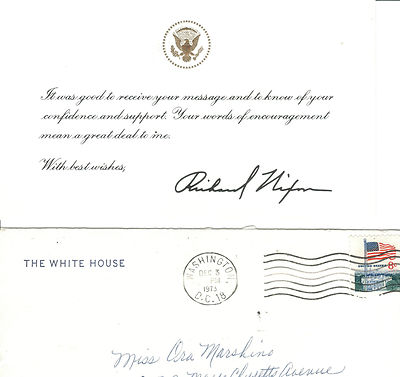 It was good to receive your message and to know of your
confidence and support. Your words of encouragement
mean a great deal to me.
With best wishes,
Richard Nixon
THE WHITE HOUSE
WASHINGTON,
DEC 3
PM
1973
D.C. 18
8c
Miss Ora Marshino
Massachusetts Avenue